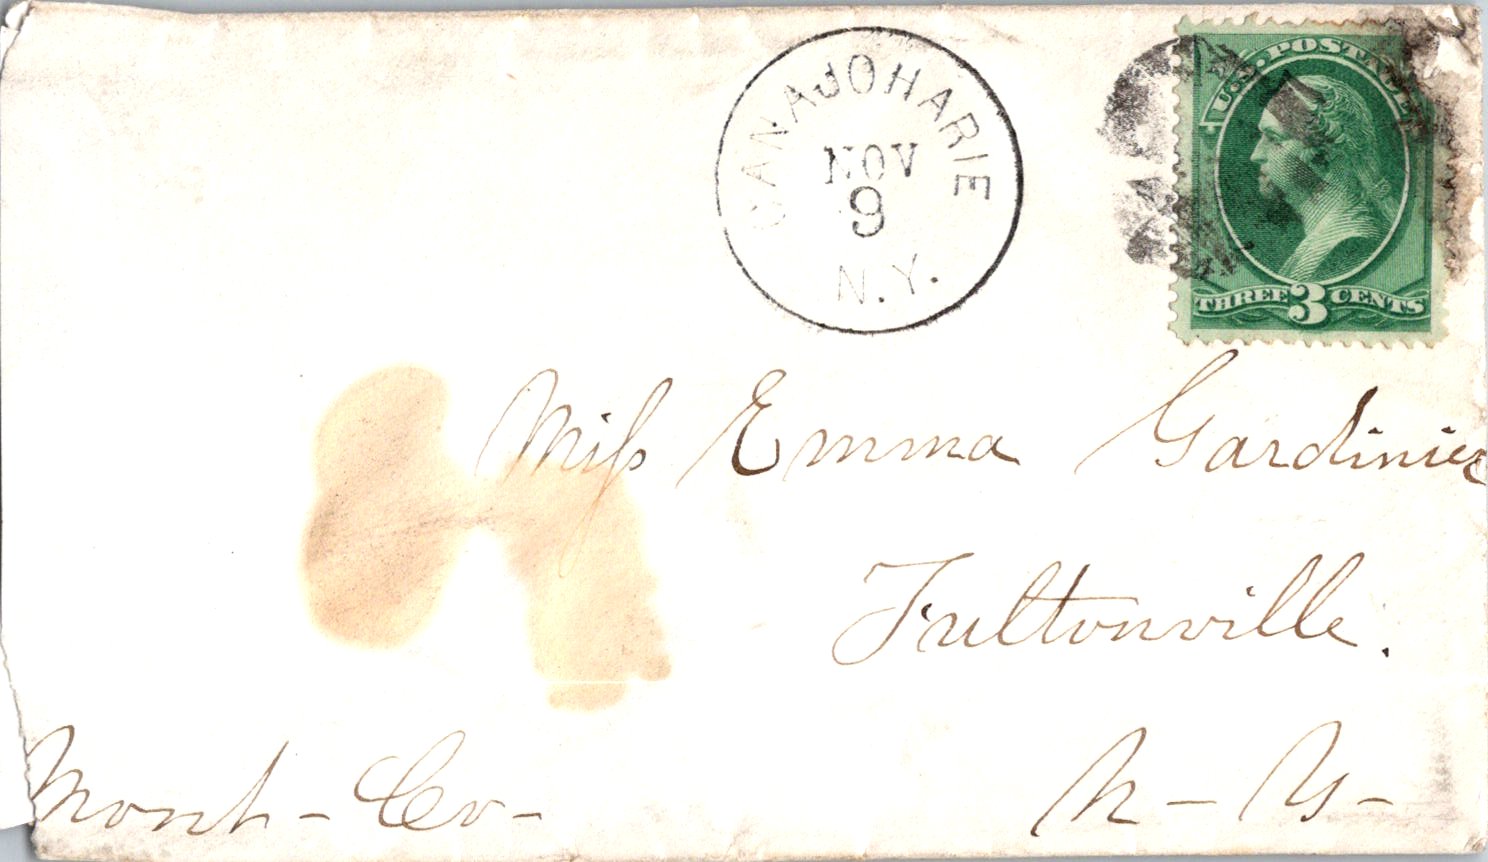 CANAJOHARIE
NOV
9
N.Y.
U.S. POSTAGE
THREE 3 CENTS
Miss Emma Gardinier
Fultonville.
Mont - Co -
N - Y -